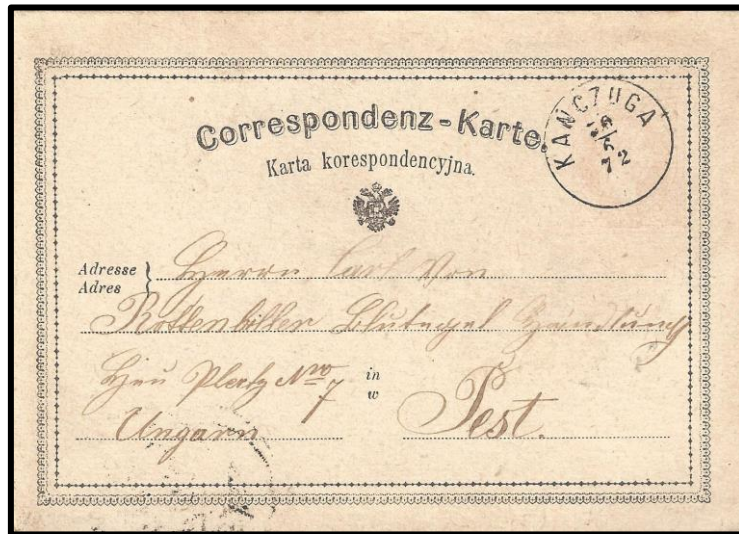 Correspondenz-Karte.
Karta korespondencyjna.
KAŃCZUGA
16/6
72
Adresse
Adres
Herrn Carl Von
Rottenbiller Blutegel Handlung
Heu Platz Nro 7
in
w
Ungarn
Pest.